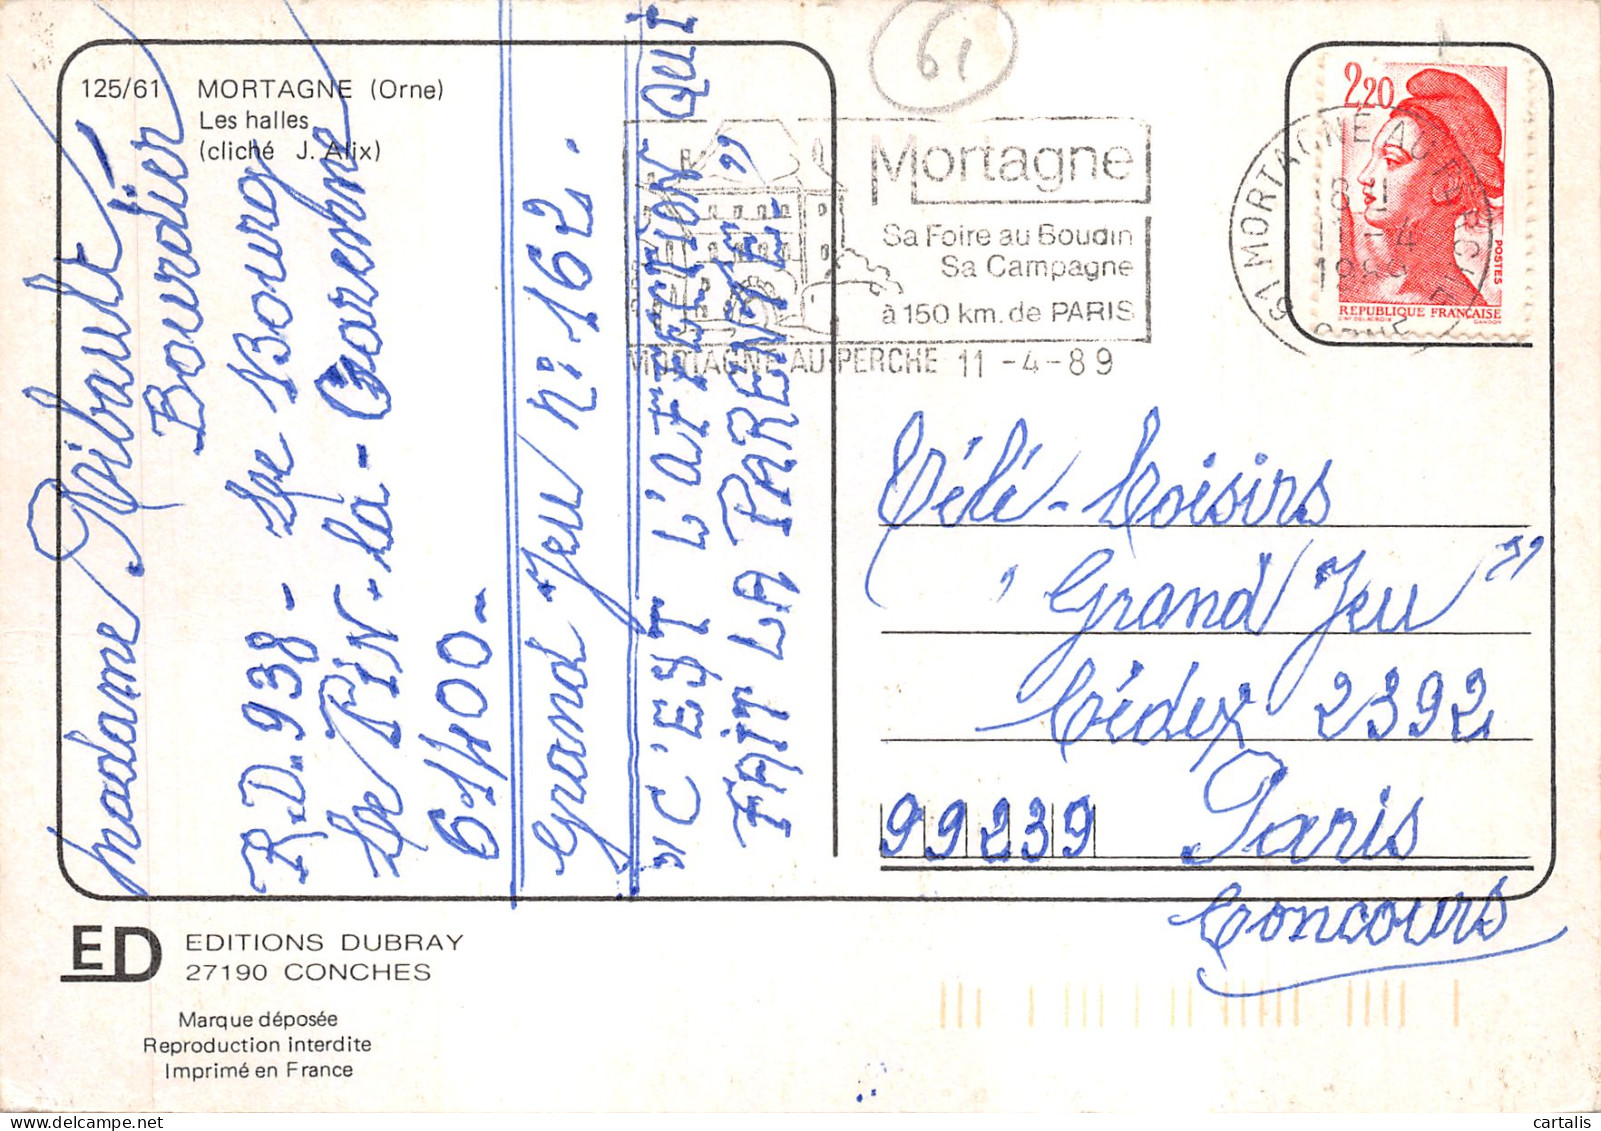 125/61 MORTAGNE (Orne)
Les halles
(cliché J. Alix)
madame Ribault
Bourdier
R.D. 938 - Le Bourg
Le PIN - la - Garenne
61400 -
Grand Jeu n: 162.
" C'EST L'AFFECTION QUI
FAIT LA PARENTÉ "
61
Mortagne
Sa Foire au Boudin
Sa Campagne
à 150 km. de PARIS
MORTAGNE AU PERCHE 11 - 4 - 89
61 MORTAGNE AU PERCHE
18 H
11 - 4
1989
ORNE
2,20
POSTES
REPUBLIQUE FRANÇAISE
Télé - Loisirs
" Grand Jeu "
Cédex 2392
99239 Paris
Concours
ED
EDITIONS DUBRAY
27190 CONCHES
Marque déposée
Reproduction interdite
Imprimé en France
cartalis